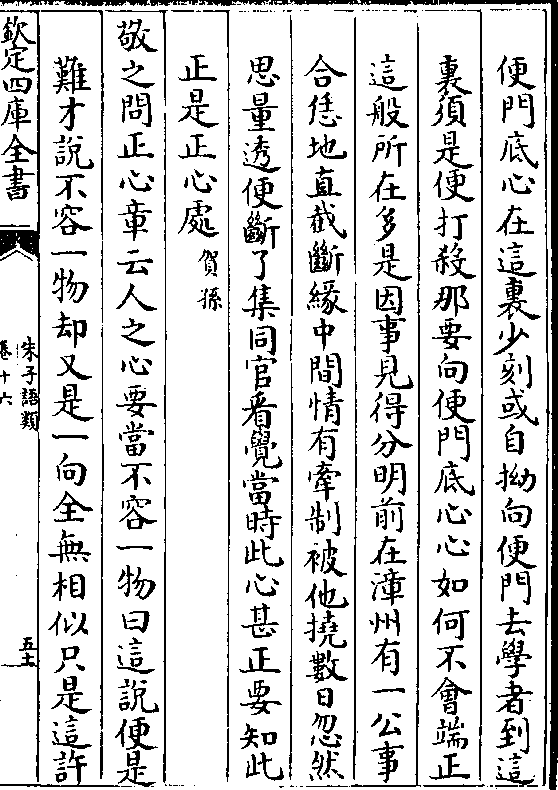 便門底心在這裏少刻或自拗向便門去學者到這
裏須是便打殺那要向便門底心心如何不會端正
這般所在多是因事見得分明前在漳州有一公事
合恁地直截斷緣中間情有牽制被他撓數日忽然
思量透便斷了集同官看覺當時此心甚正要知此
正是正心處賀孫
敬之問正心章云人之心要當不容一物曰這說便是
難才說不容一物却又是一向全無相似只是這許
欽定四庫全書
朱子語類
卷十六
五十